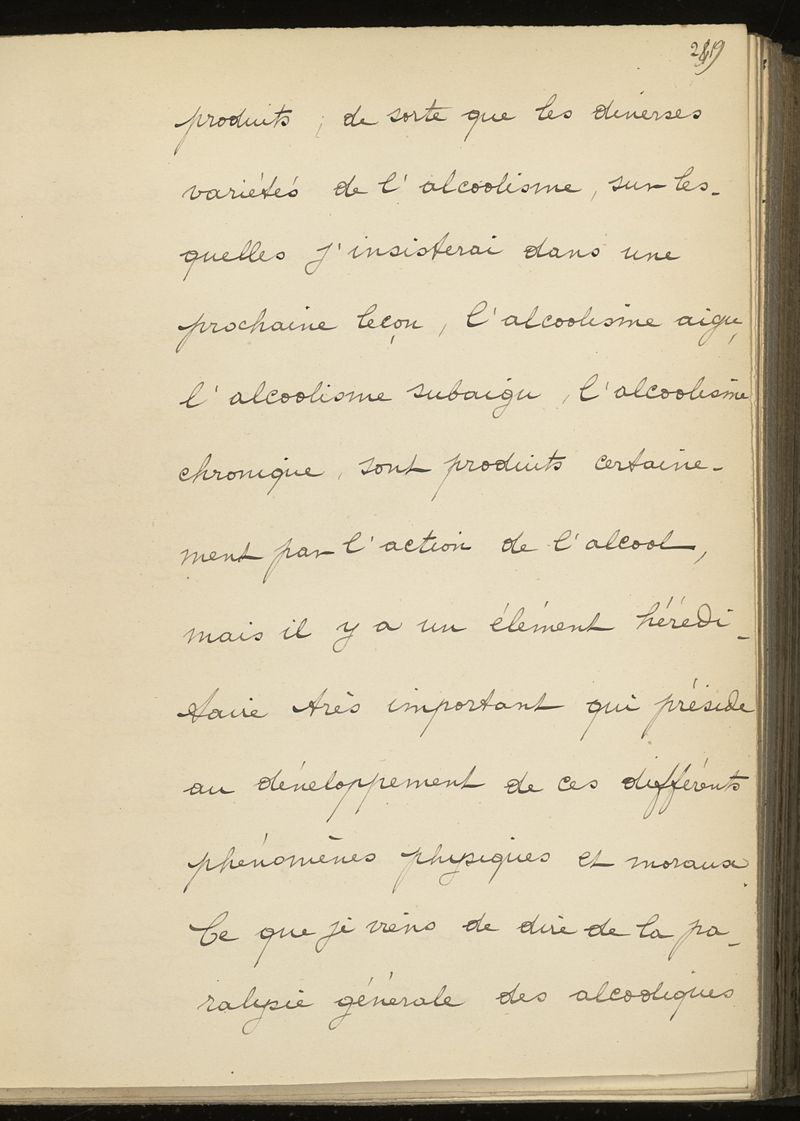 produits, de sorte que les diverses
variétés de l'alcoolisme, sur les-
quelles j'insisterai dans une
prochaine leçon, l'alcoolisme aigu,
l'alcoolisme subaigu, l'alcoolisme
chronique, sont produits certaine-
ment par l'action de l'alcool,
mais il y a un élément hérédi-
taire très important qui préside
au développement de ces différents
phénomènes physiques et moraux.
Ce que je viens de dire de la pa-
ralysie générale des alcooliques